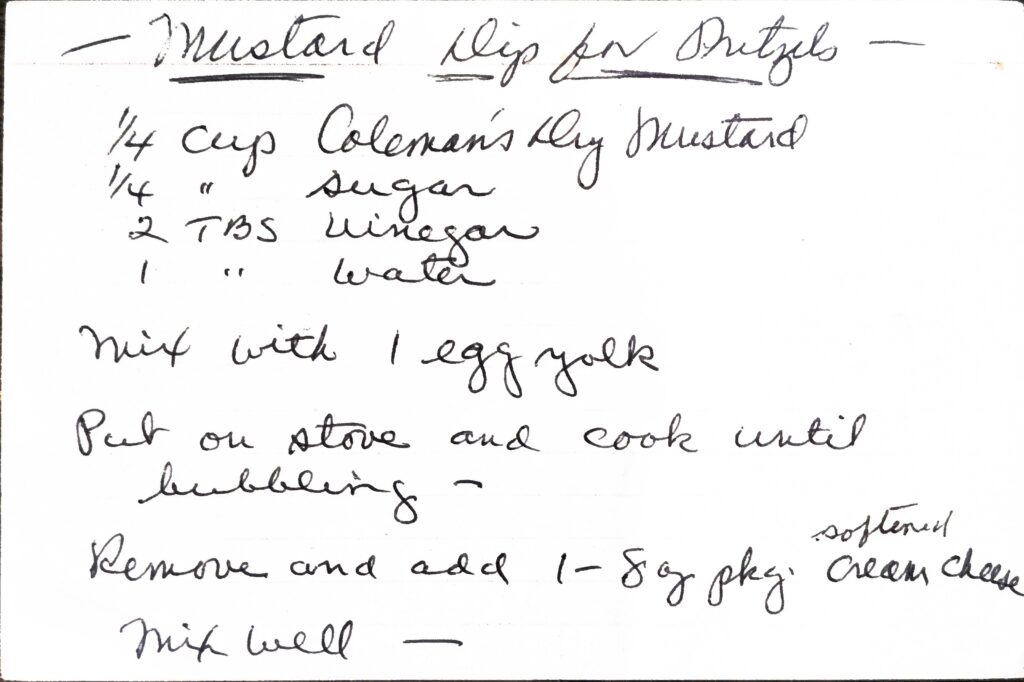 — Mustard Dip for Pretzels —
1/4 cup Coleman's Dry Mustard
1/4 " sugar
2 TBS Vinegar
1 " water
Mix with 1 egg yolk
Put on stove and cook until
bubbling –
Remove and add 1 – 8 oz pkg. softened cream cheese
Mix well —